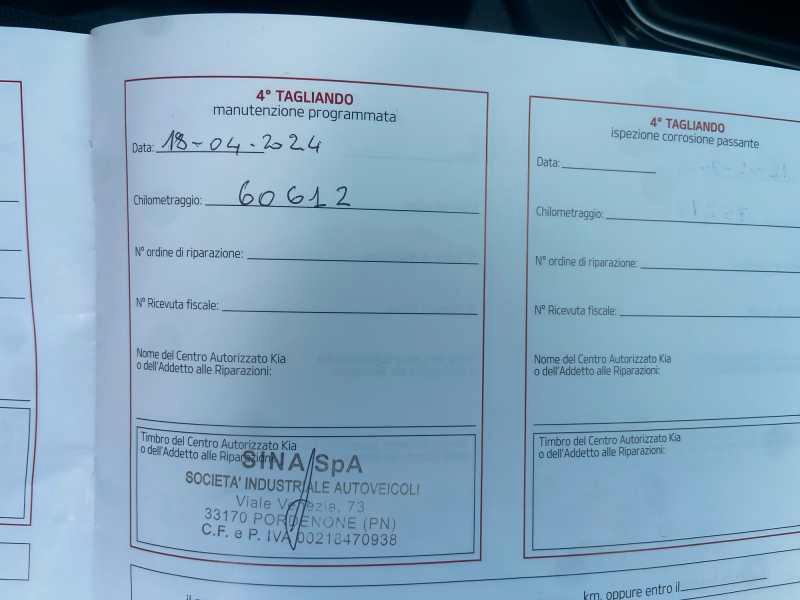 4° TAGLIANDO
manutenzione programmata
Data: 18-04-2024
Chilometraggio: 60612
N° ordine di riparazione:
N° Ricevuta fiscale:
Nome del Centro Autorizzato Kia
o dell'Addetto alle Riparazioni:
Timbro del Centro Autorizzato Kia
o dell'Addetto alle Riparazioni:
SINA SpA
SOCIETA' INDUSTRIALE AUTOVEICOLI
Viale Venezia, 73
33170 PORDENONE (PN)
C.F. e P. IVA 00218470938
4° TAGLIANDO
ispezione corrosione passante
Data:
Chilometraggio:
N° ordine di riparazione:
N° Ricevuta fiscale:
Nome del Centro Autorizzato Kia
o dell'Addetto alle Riparazioni:
Timbro del Centro Autorizzato Kia
o dell'Addetto alle Riparazioni:
km. oppure entro il